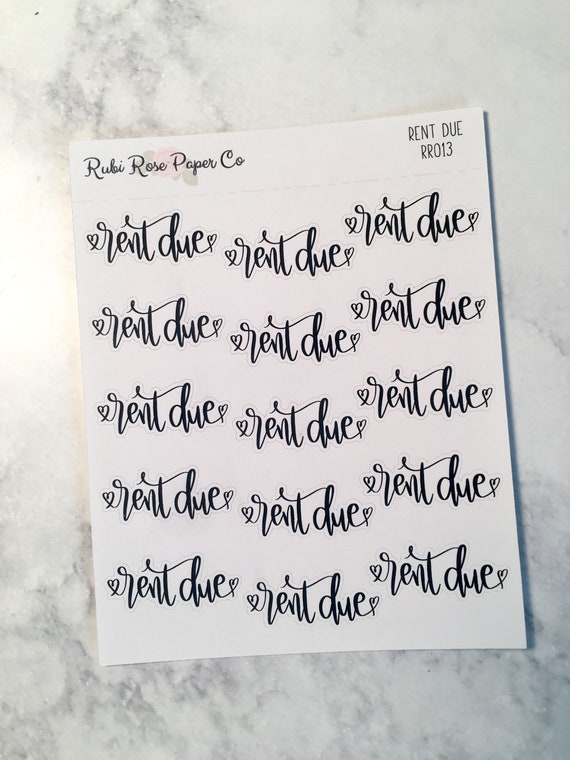 Rubi Rose Paper Co
RENT DUE
RR013
rent due rent due rent due
rent due rent due rent due
rent due rent due rent due
rent due rent due rent due
rent due rent due rent due